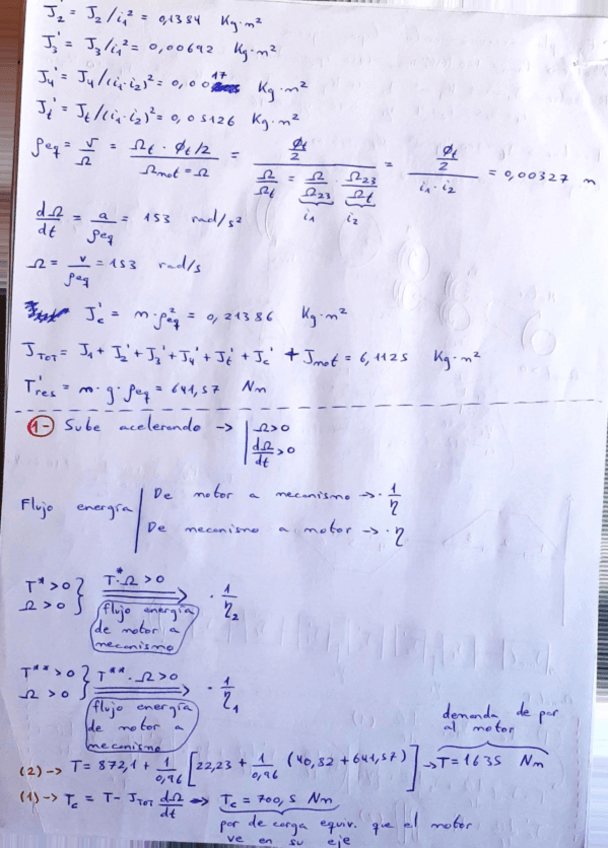 J₂' = J₂/i₁² = 0,1384 Kg·m²
J₃' = J₃/i₁² = 0,00692 Kg·m²
J₄' = J₄/(i₁·i₂)² = 0,0017 Kg·m²
Jₜ' = Jₜ/(i₁·i₂)² = 0,05126 Kg·m²
ρeq = v/Ω = (Ωₜ · ϕₜ/2)/(Ωmot = Ω) = (ϕₜ/2)/(Ω/Ωₜ = Ω/Ω₂₃ · Ω₂₃/Ωₜ) = (ϕₜ/2)/(i₁·i₂) = 0,00327 m
i₁ i₂
dΩ/dt = a/ρeq = 153 rad/s²
Ω = v/ρeq = 153 rad/s
Jc' = m·ρeq² = 0,21386 Kg·m²
JTOT = J₁ + J₂' + J₃' + J₄' + Jₜ' + Jc' + Jmot = 6,1125 Kg·m²
T'res = m·g·ρeq = 641,57 Nm
1- Sube acelerando -> | Ω>0
dΩ/dt >0
Flujo energía | De motor a mecanismo -> · 1/η
De mecanismo a motor -> · η
T* >0 } T*·Ω >0 · 1/η₂
Ω >0
flujo energía
de motor a
mecanismo
T** >0 } T**·Ω >0 · 1/η₁
Ω >0
flujo energía
de motor a
mecanismo
demanda de par
al motor
(2)-> T = 872,1 + 1/0,96 [22,23 + 1/0,96 (40,82 + 641,57)] -> T = 1635 Nm
(1)-> Tc = T - JTOT dΩ/dt => Tc = 700,5 Nm
par de carga equiv. que el motor
ve en su eje